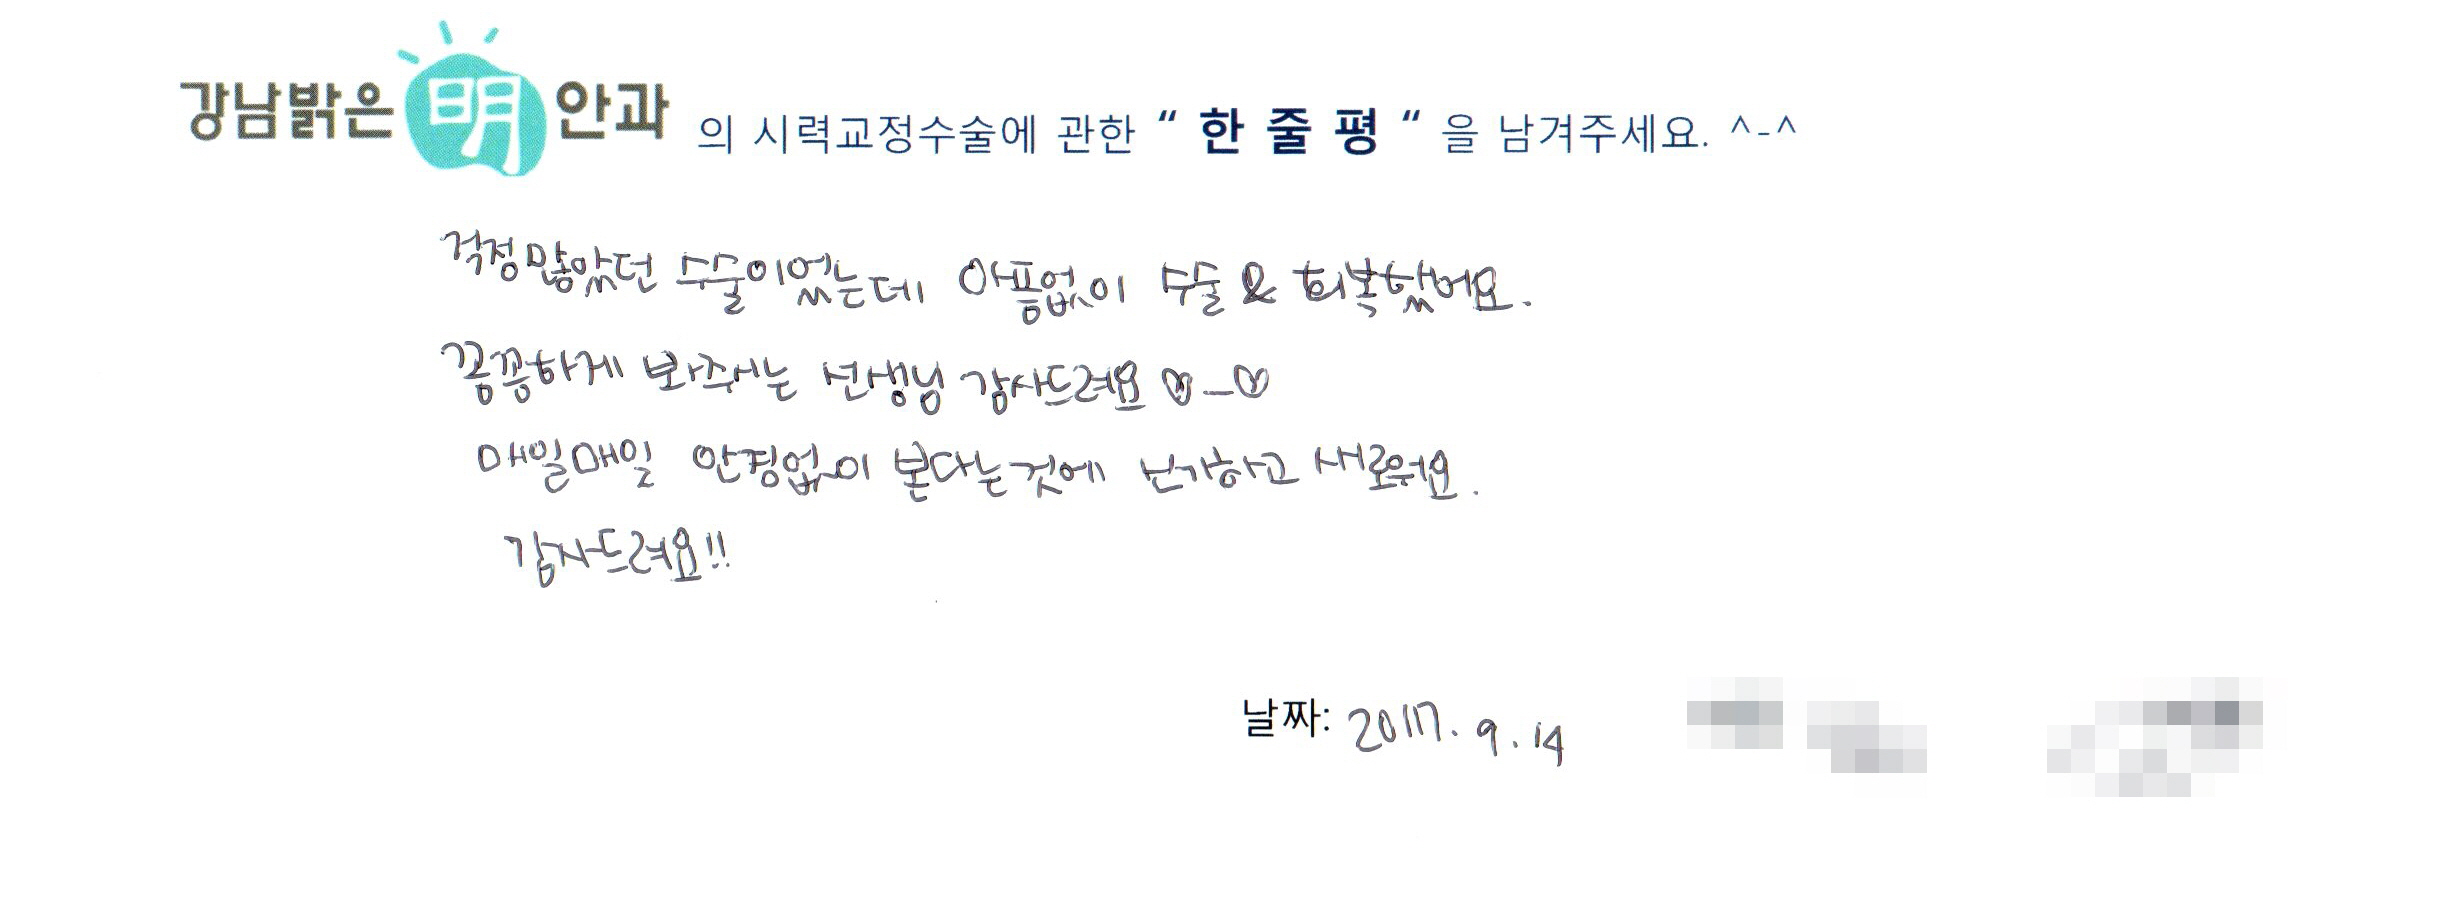 강남밝은 明 안과 의 시력교정수술에 관한 “ 한 줄 평 “ 을 남겨주세요. ^-^
걱정많았던 수술이었는데 아픔없이 수술 & 회복했어요.
꼼꼼하게 봐주시는 선생님 감사드려요 ♡-♡
매일매일 안경없이 본다는것에 신기하고 새로워요.
감사드려요!!
날짜: 2017. 9. 14